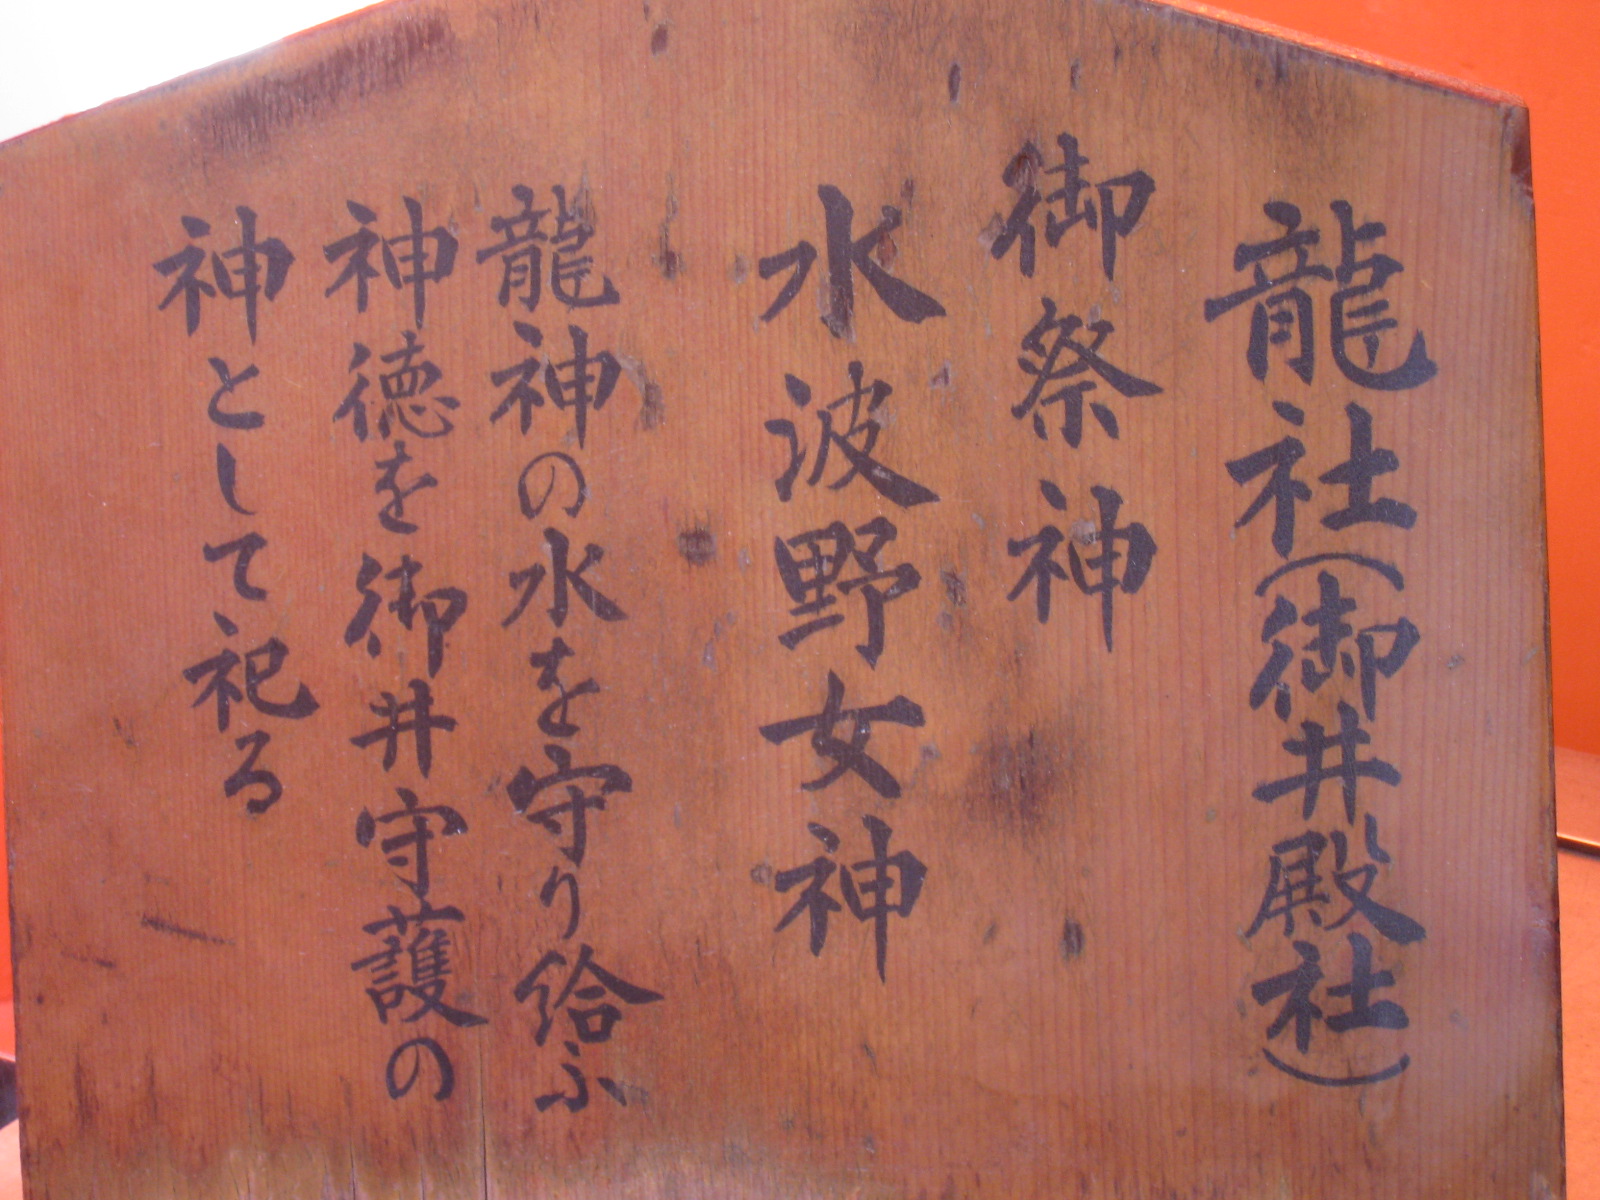 龍社(御井殿社)
御祭神
水波野女神
龍神の水を守り給ふ
神徳を御井守護の
神として祀る